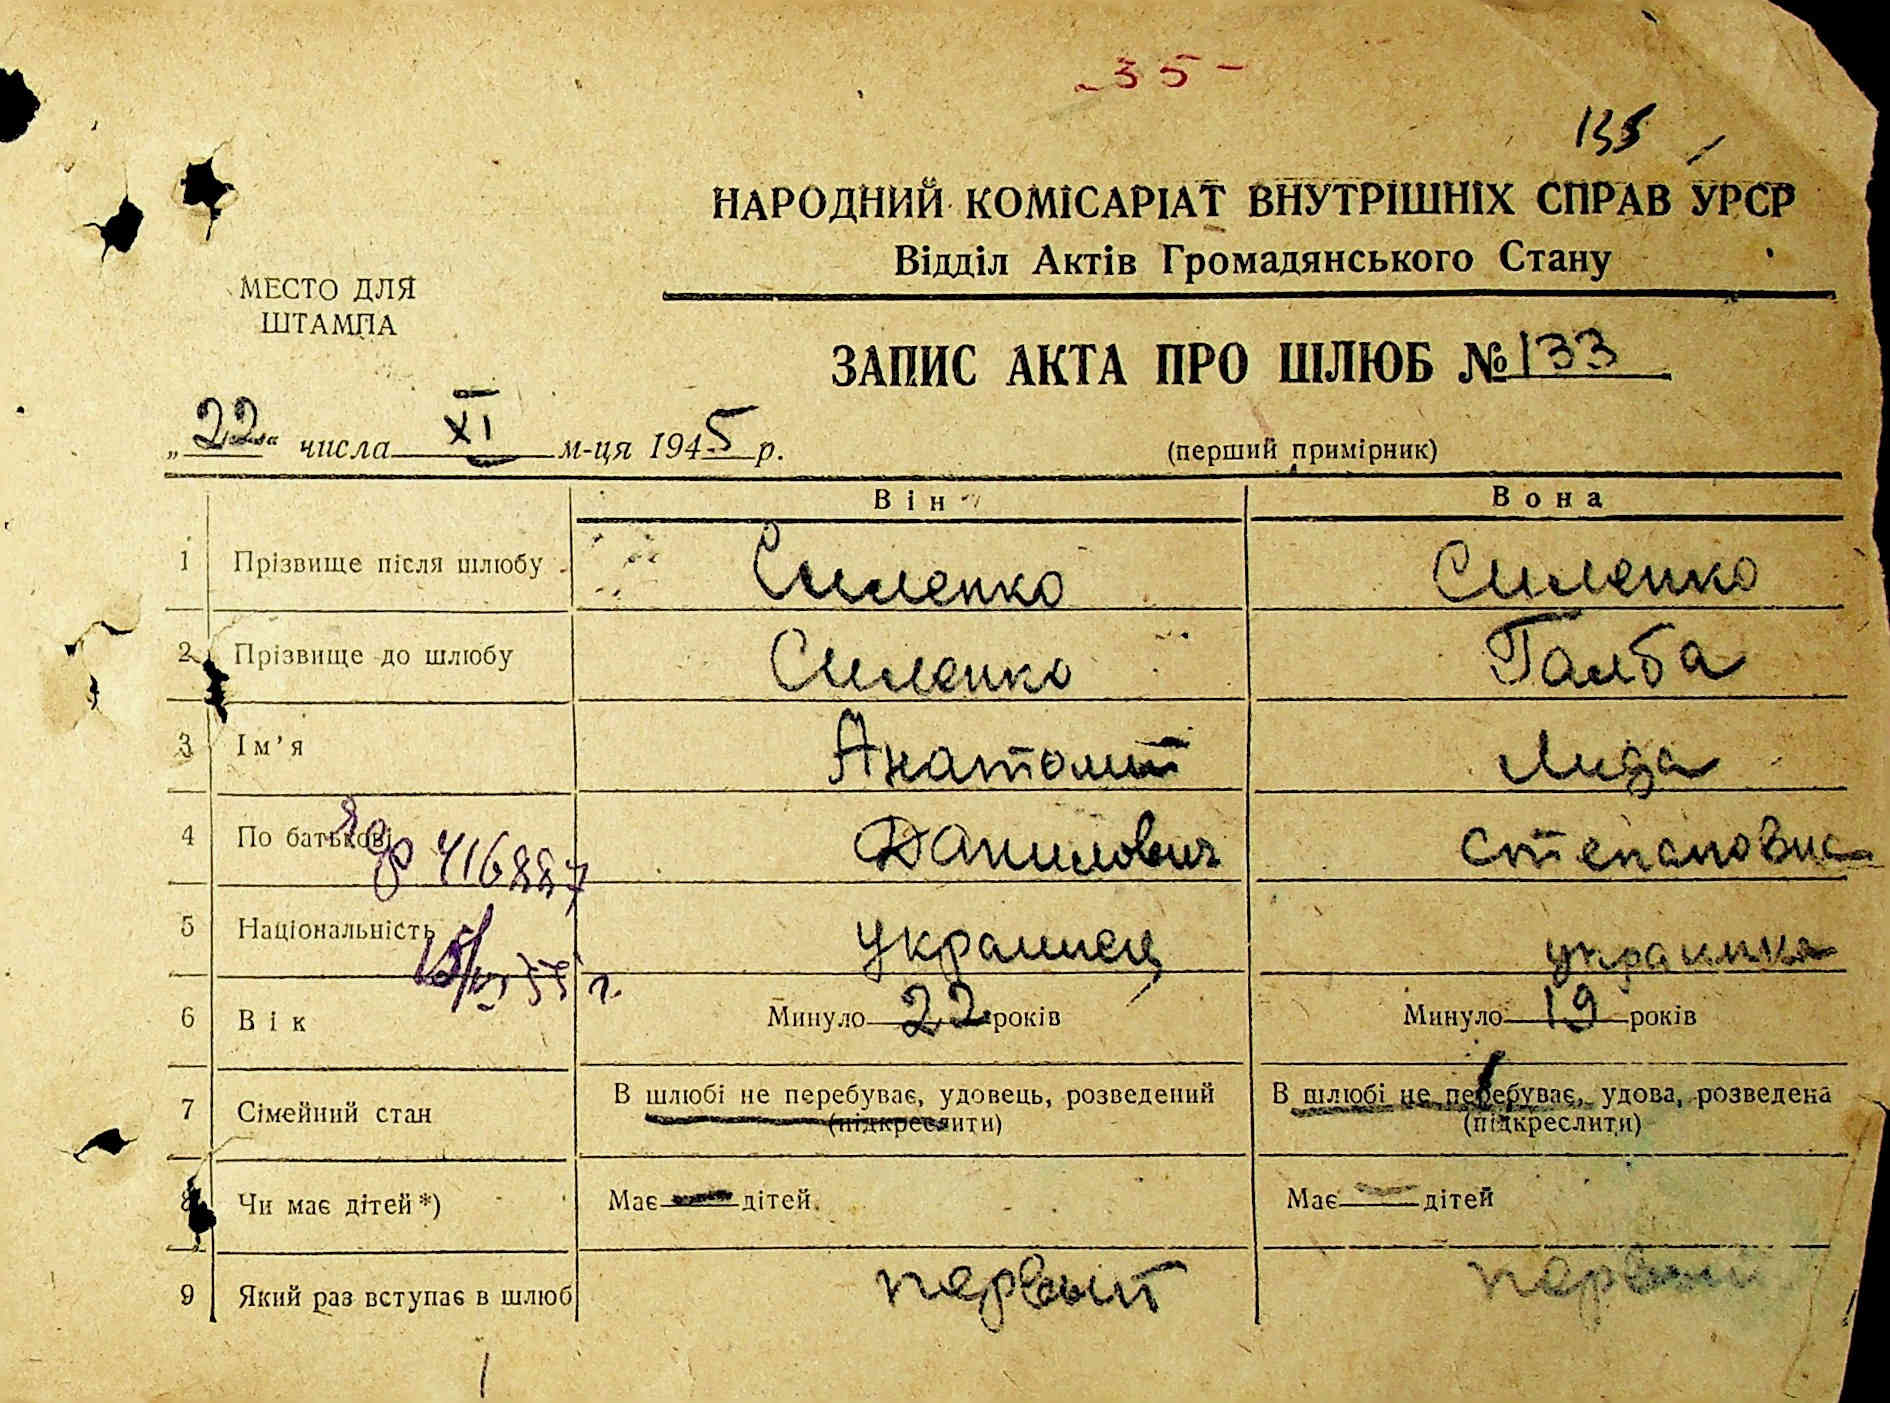 - 35 -
135
НАРОДНИЙ КОМІСАРІАТ ВНУТРІШНІХ СПРАВ УРСР
Відділ Актів Громадянського Стану
МЕСТО ДЛЯ
ШТАМПА
ЗАПИС АКТА ПРО ШЛЮБ № 133
„22“ числа XI м-ця 1945 р.
(перший примірник)
Він Вона
1 Прізвище після шлюбу Силенко Силенко
2 Прізвище до шлюбу Силенко Галба
3 Ім'я Анатолий Лида
4 По батькові Данилович Степановна
416887
5 Національність украинец украинка
6 Вік Минуло 22 років Минуло 19 років
7 Сімейний стан В шлюбі не перебуває, удовець, розведений В шлюбі не перебуває, удова, розведена
(підкреслити) (підкреслити)
8 Чи має дітей *) Має — дітей Має — дітей
9 Який раз вступає в шлюб первый первый